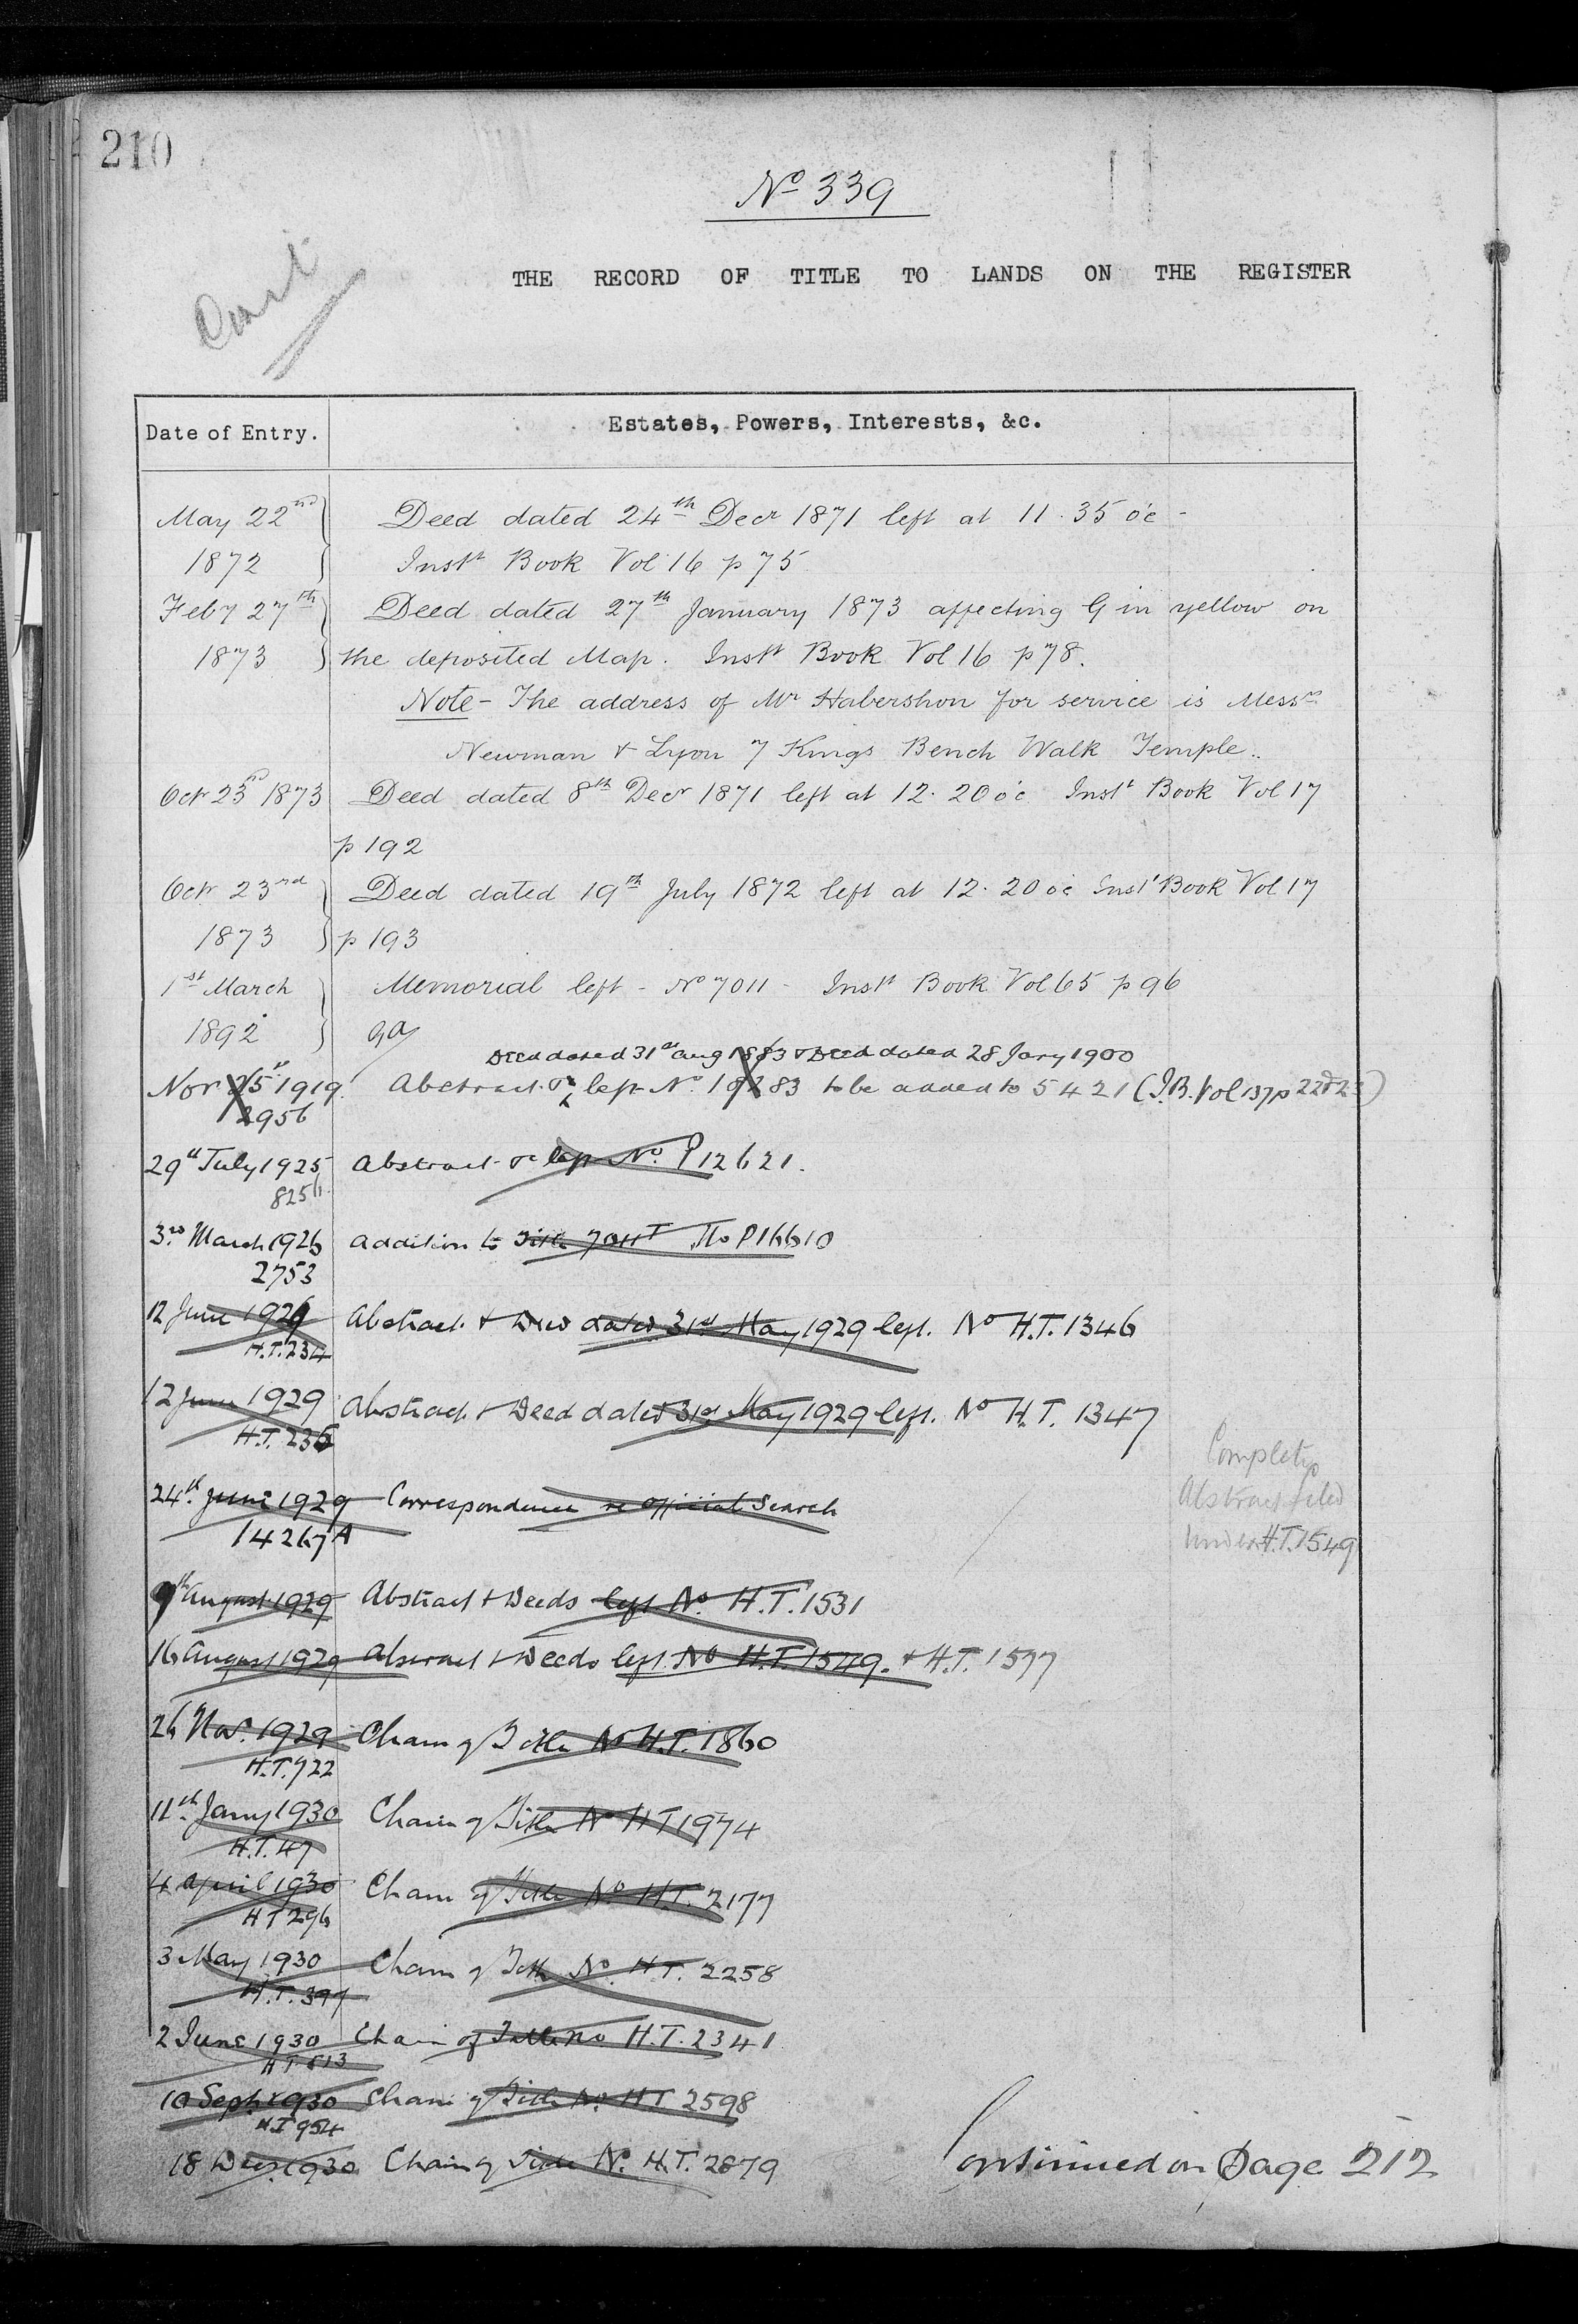 210
No 339
THE RECORD OF TITLE TO LANDS ON THE REGISTER
Date of Entry. Estates, Powers, Interests, &c.
May 22nd Deed dated 24th Decr 1871 left at 11.35 oc -
1872 Instt Book Vol 16 p 75
Feby 27th Deed dated 27th January 1873 affecting G in yellow on
1873 the deposited Map. Instt Book Vol 16 p 78.
Note - The address of Mr Habershon for service is Messrs
Newman & Lyon 7 Kings Bench Walk Temple..
Octr 23rd 1873 Deed dated 8th Decr 1871 left at 12.20 oc Instt Book Vol 17
p 192
Octr 23rd Deed dated 19th July 1872 left at 12.20 oc Instt Book Vol 17
1873 p 193
1st March Memorial left - No 7011 - Instt Book Vol 65 p 96
1892
Deed dated 31st Aug 1883 & Deed dated 28 Jany 1900
Nov 25th 1919 Abstract &c left No. 19283 to be added to 5421 (I.B. Vol 137 p 22 & 23)
2956
29th July 1925 Abstract &c left No. P12621.
8256
3rd March 1926 Addition to Title 7011 No P16610
2753
12 June 1929 Abstract & Deed dated 31st May 1929 left. No H.T. 1346
H.T. 234
12 June 1929 Abstract & Deed dated 31st May 1929 left. No H.T. 1347
H.T. 235
Complete
Abstract filed
under H.T. 1549
24th June 1929 Correspondence re official Search
14267A
9th August 1929 Abstract & Deeds left No. H.T. 1531
16 August 1929 Abstract & Deeds left No H.T. 1549. & H.T. 1577
26 Nov. 1929 Chain of Title No H.T. 1860
H.T. 722
11th Jany 1930 Chain of Title No HT 1974
H.T. 47
4 April 1930 Chain of Title No. H.T. 2177
HT 296
3 May 1930 Chain of Title No. H.T. 2258
H.T. 397
2 June 1930 Chain of Title No H.T. 2341
HT 513
10 Sept 1930 Chain of Title No. HT 2598
H.T 954
18 Decr. 1930 Chain of Title No. H.T. 2879
Continued on Page 212